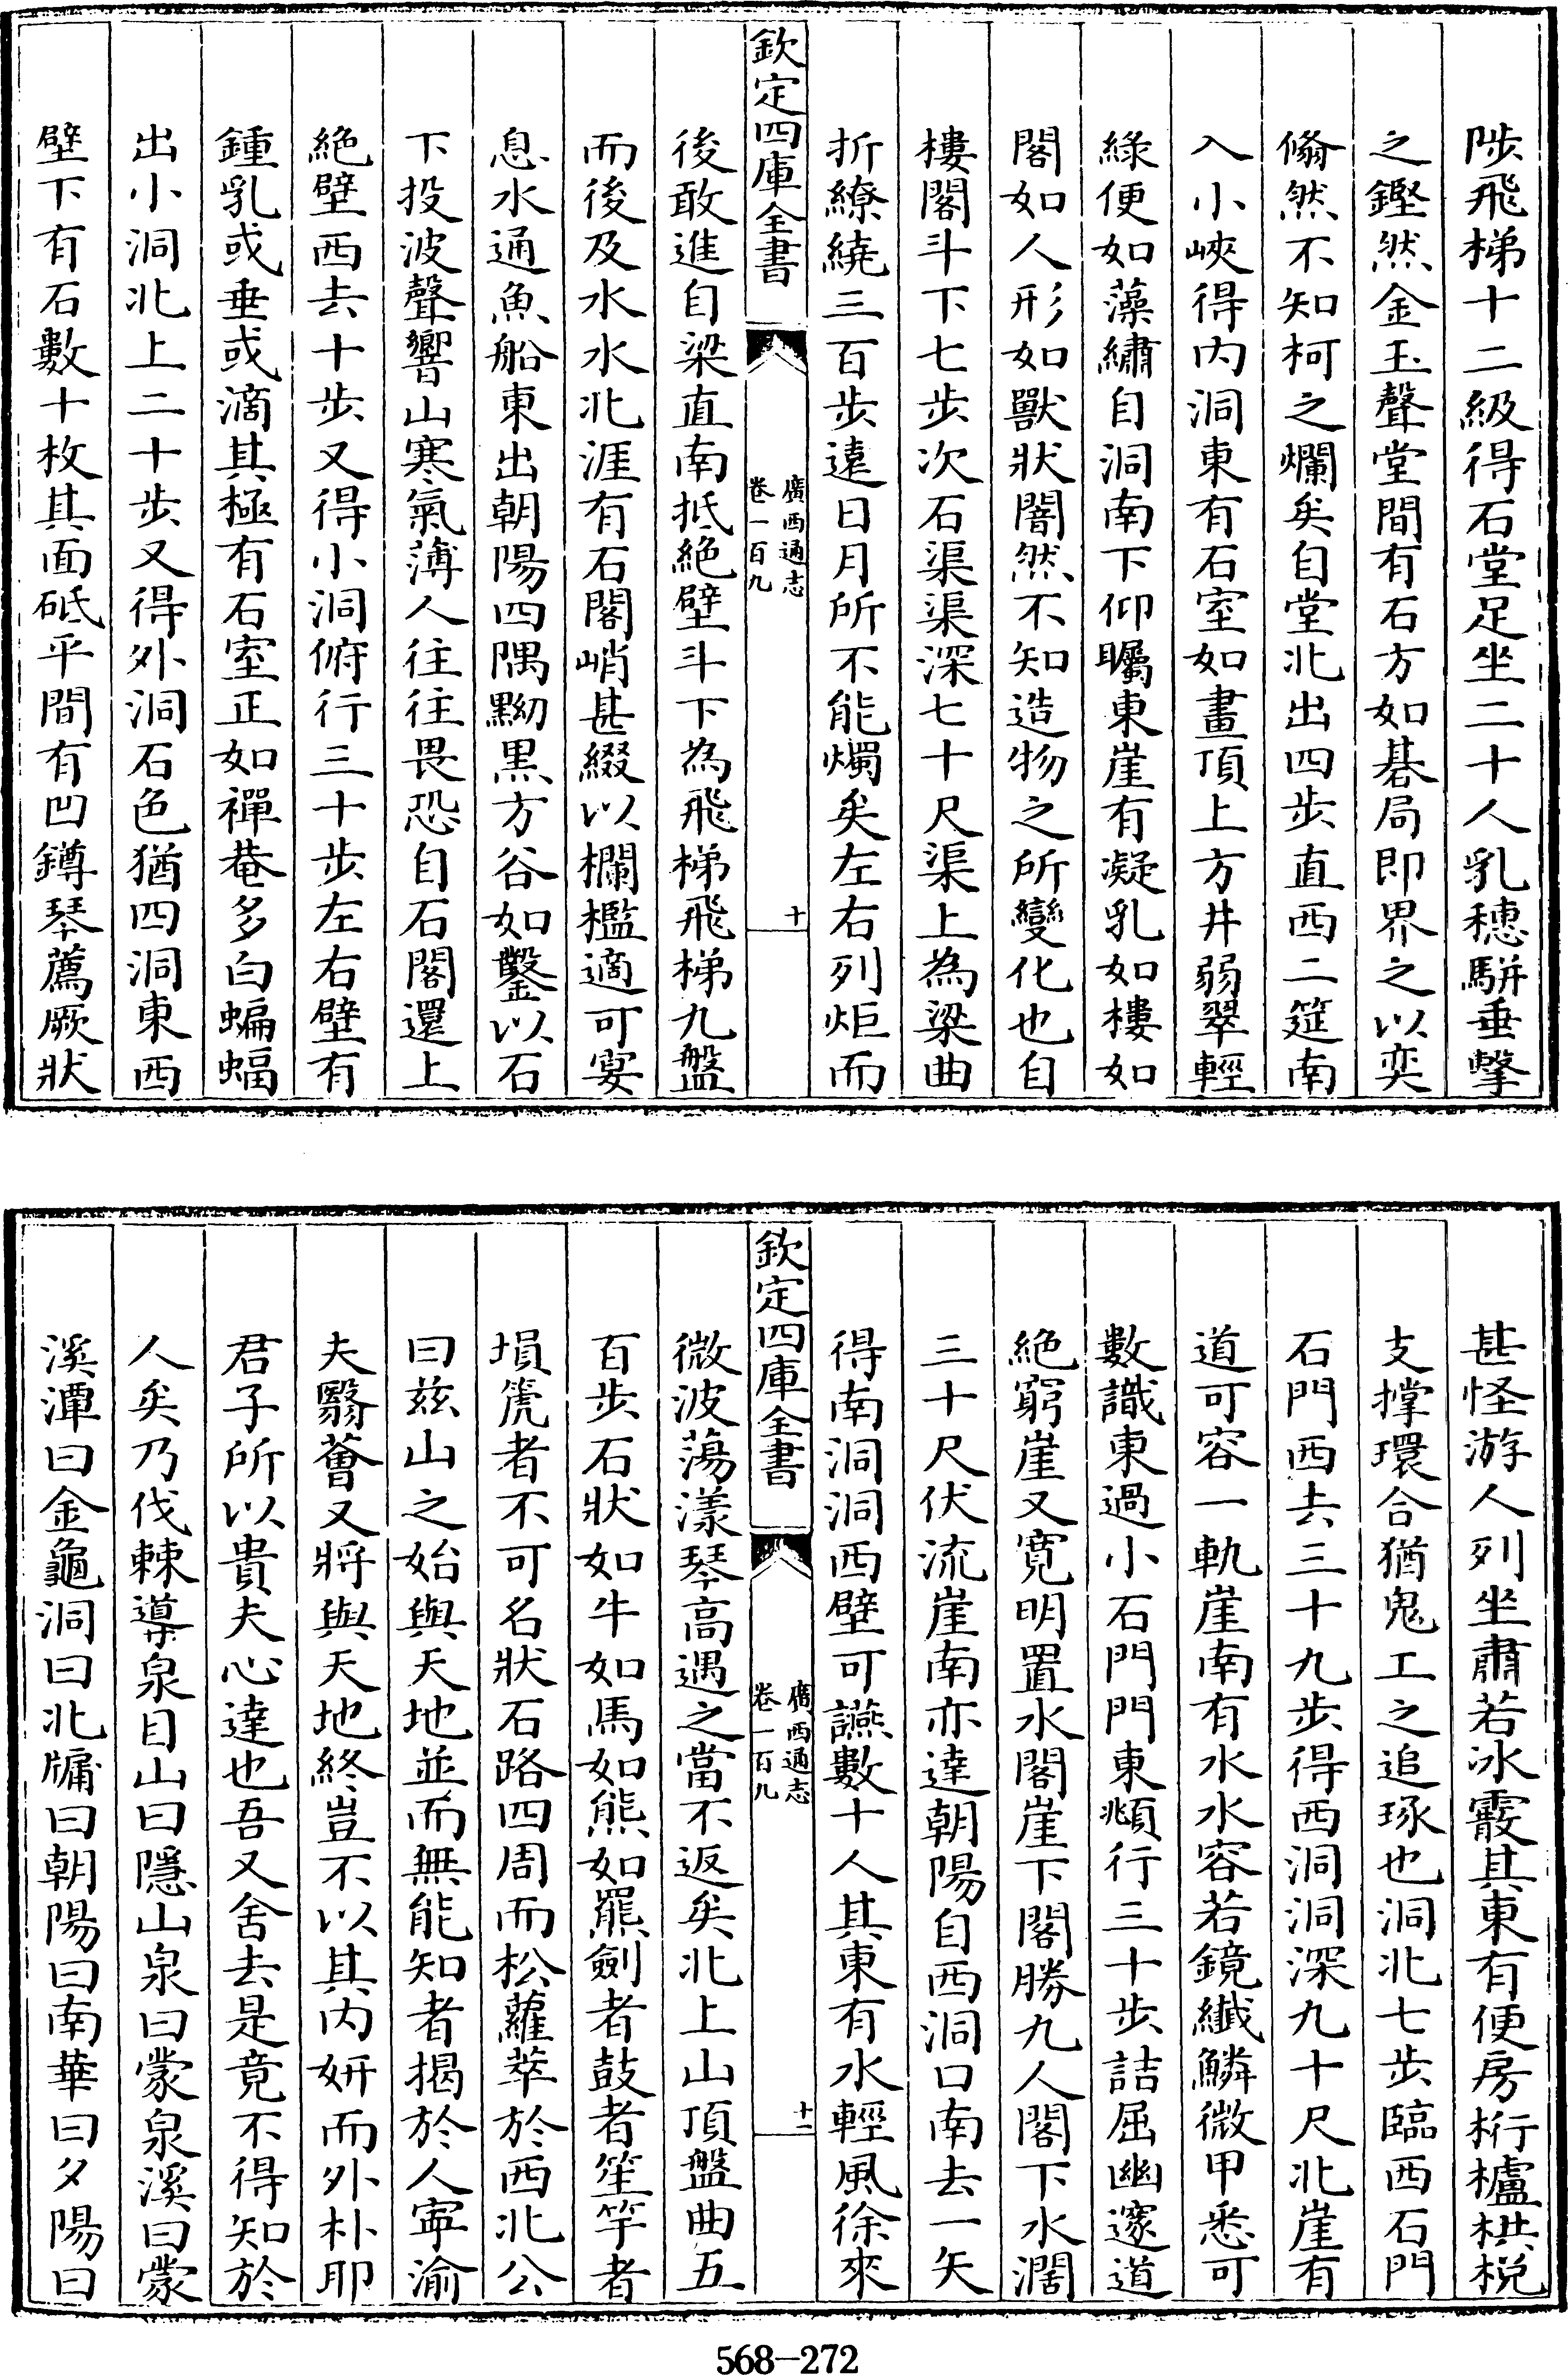 陟飛梯十二級得石堂足坐二十人乳穗駢垂擊
之鏗然金玉聲堂間有石方如碁局即界之以奕
翛然不知柯之爛矣自堂北出四步直西二筵南
入小峽得内洞東有石室如畫頂上方井弱翠輕
綠便如藻繡自洞南下仰矚東崖有凝乳如樓如
閣如人形如獸狀闇然不知造物之所變化也自
樓閣斗下七步次石渠渠深七十尺渠上為梁曲
折繚繞三百步遠日月所不能燭矣左右列炬而
欽定四庫全書
廣西通志
卷一百九
十
後敢進自梁直南抵絶壁斗下為飛梯飛梯九盤
而後及水水北涯有石閣峭甚綴以欄檻適可宴
息水通魚船東出朝陽四隅黝黒方谷如鑿以石
下投波聲響山寒氣薄人往往畏恐自石閣還上
絶壁西去十步又得小洞俯行三十步左右壁有
鍾乳或垂或滴其極有石室正如禪菴多白蝙蝠
出小洞北上二十步又得外洞石色猶四洞東西
壁下有石數十枚其面砥平間有凹鐏琴薦厥狀
甚怪游人列坐肅若冰霰其東有便房桁櫨栱梲
支撑環合猶鬼工之追琢也洞北七步臨西石門
石門西去三十九步得西洞洞深九十尺北崖有
道可容一軌崖南有水水容若鏡纎鱗微甲悉可
數識東過小石門門東頫行三十步詰屈幽邃道
絶窮崖又寛明置水閣崖下閣勝九人閣下水濶
三十尺伏流崖南亦達朝陽自西洞口南去一矢
得南洞洞西壁可讌數十人其東有水輕風徐來
欽定四庫全書
廣西通志
卷一百九
十一
微波蕩漾琴高遇之當不返矣北上山頂盤曲五
百步石狀如牛如馬如熊如羆劍者鼓者笙竽者
塤箎者不可名狀石路四周而松蘿萃於西北公
曰兹山之始與天地並而無能知者揭於人寧渝
夫翳薈又將與天地終豈不以其内妍而外朴耶
君子所以貴夫心達也吾又舍去是竟不得知於
人矣乃伐棘導泉目山曰隱山泉曰蒙泉溪曰蒙
溪潭曰金龜洞曰北牖曰朝陽曰南華曰夕陽曰
568-272